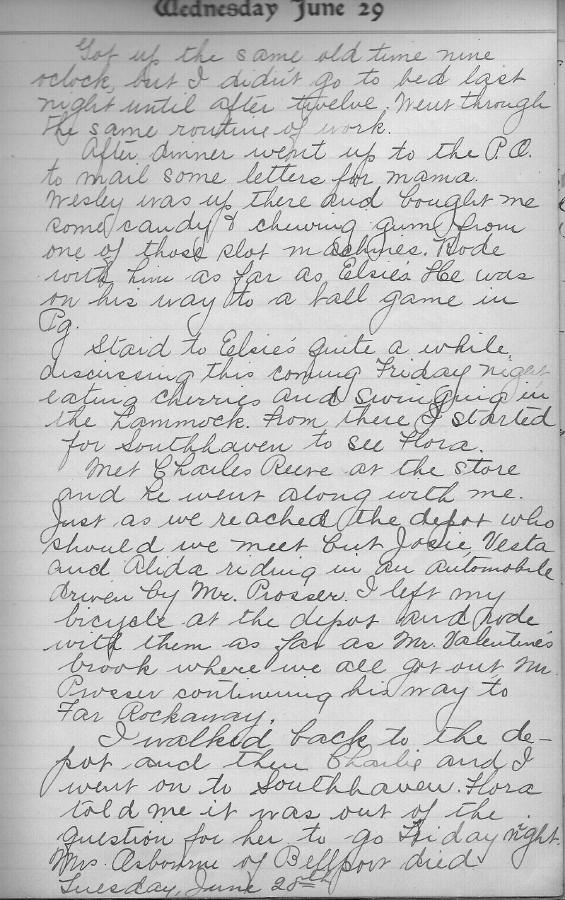 Wednesday June 29
Got up the same old time nine
oclock, but I didn't go to bed last
night until after twelve. Went through
the same routine of work.
After dinner went up to the P.O.
to mail some letters for mama.
Wesley was up there and bought me
some candy & chewing gum from
one of those slot machines. Rode
with him as far as Elsie's. He was
on his way to a ball game in
Pg.
Staid to Elsie's quite a while,
discussing this coming Friday night
eating cherries and swinging in
the hammock. From there I started
for Southhaven to see Flora.
Met Charles Reeve at the store
and he went along with me.
Just as we reached the depot who
should we meet but Josie, Vesta
and Alida riding in an automobile
driven by Mr. Prosser. I left my
bicycle at the depot and rode
with them as far as Mr. Valentine's
brook where we all got out Mr.
Prosser continuing his way to
Far Rockaway.
I walked back to the de-
pot and then Charlie and I
went on to Southhaven. Flora
told me it was out of the
question for her to go Friday night.
Mrs. Osbourne of Bellport died
Tuesday, June 28th